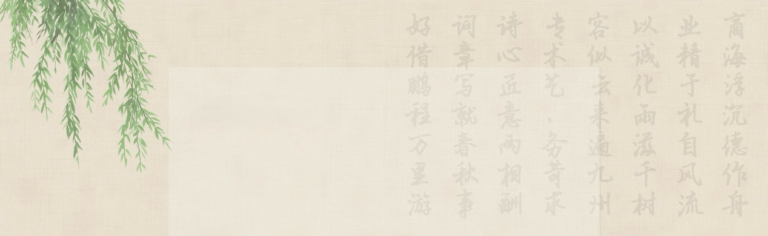 商海浮沉德作舟
业精于礼自风流
以诚化雨滋千树
容似云来遍九州
专术艺、务苛求
诗心匠意两相酬
词章写就春秋事
好借鹏程万里游